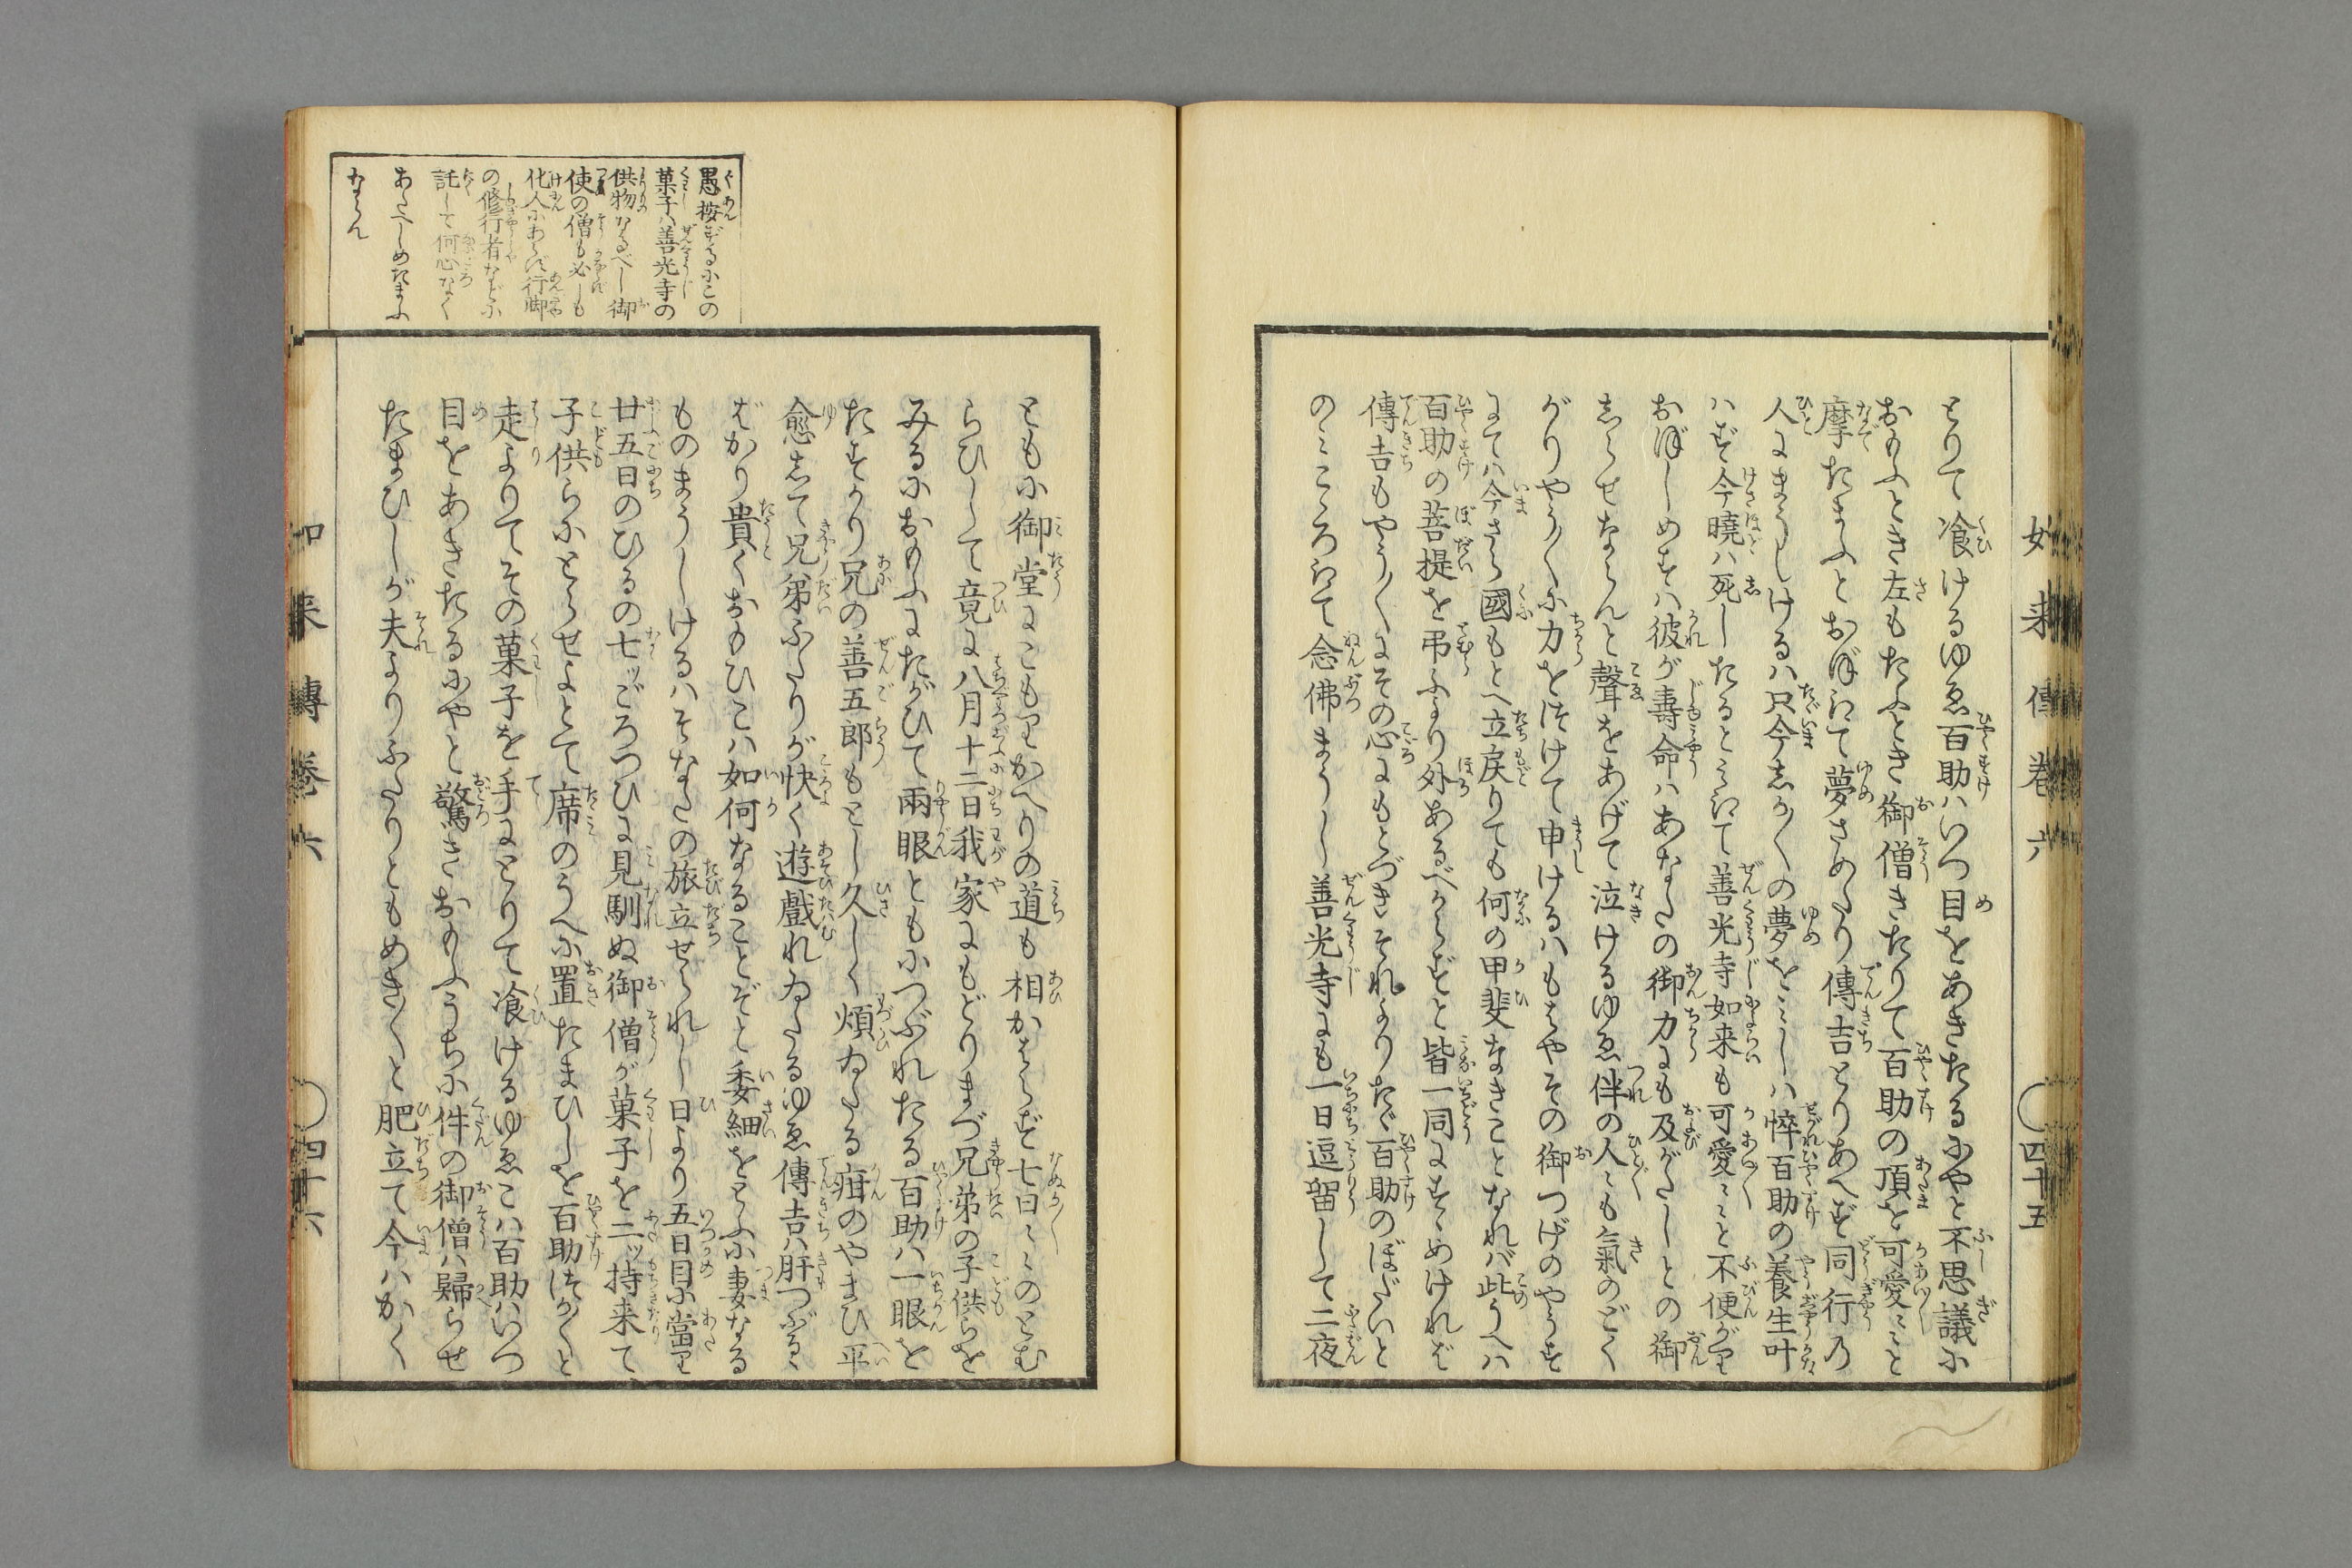 如来傳巻六 〇四十五
とりて飡けるゆゑ百助ハいつ目をあきたるにやと不思議に
おもふとき左もたふとき御僧きたりて百助の頂を可愛〻と
摩たまふとおぼけて夢さめたり傳吉とりあへず同行乃
人にまうしけるハ只今しか〱の夢をミしハ悴百助の養生叶
ハず今曉ハ死したるとミけて善光寺如来も可愛〻と不便がり
おぼしめせハ彼が壽命ハあなたの御力にも及がたしとの御
しらせならんと聲をあげて泣けるゆゑ伴の人〻も氣のどく
がりやう〱に力をつけて申けるハもはやその御つげのやうす
にてハ今さら國もとへ立戻りても何の甲斐なきことなれバ此うへハ
百助の菩提を弔ふより外あるべからずと皆一同にすゝめけれバ
傳吉もやう〱にその心にもとづきそれよりたゞ百助のぼだいと
のミこゝろけて念佛まうし善光寺にも一日逗留して二夜
ともに御堂にこもりかへりの道も相かはらず七日〻のとむ
らひして竟に八月十二日我家にもどりまづ兄弟の子供らを
みるにおもふにたがひて兩眼ともにつぶれたる百助ハ一眼を
たすかり兄の善五郎もとし久しく煩ゐたる疳のやまひ平
愈して兄弟ふたりが快く遊戯れゐたるゆゑ傳吉ハ肝つぶるゝ
ばかり貴くおもひこハ如何なることぞと委細をとふに妻なる
ものまうしけるハそなたの旅立せられし日より五日目に當り
廿五日のひるの七ツごろつひに見馴ぬ御僧が菓子を二ツ持来て
子供らにとらせよとて席のうへに置たまひしを百助はつか〱と
走よりてその菓子を手にとりて飡けるゆゑこハ百助ハいつ
目をあきたるにやと驚きおもふうちに件の御僧ハ歸らせ
たまひしが夫よりふたりともめき〱と肥立て今ハかく
愚按ずるにこの
菓子ハ善光寺の
供物なるべし御
使の僧も必しも
化人にあらず行脚
の修行者などに
託して何心なく
あたへしめたまふ
ならん
如来傳巻六 〇四十六